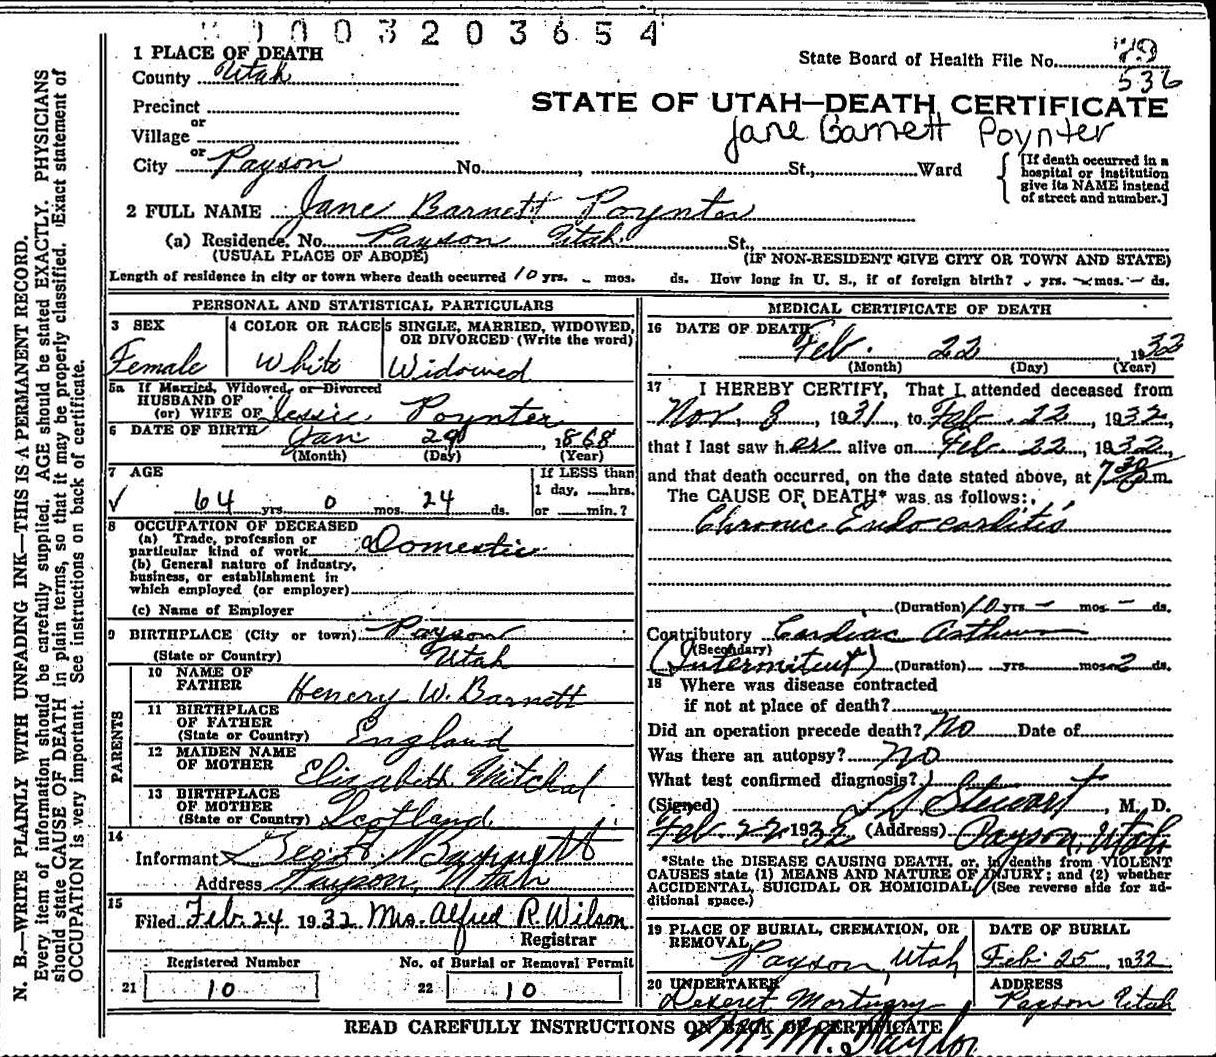 1003203654
1 PLACE OF DEATH
State Board of Health File No. 29
536
County Utah
Precinct
or
Village
or
City Payson No. , St., Ward
STATE OF UTAH—DEATH CERTIFICATE
Jane Barnett Poynter
[If death occurred in a
hospital or institution
give its NAME instead
of street and number.]
2 FULL NAME Jane Barnett Poynter
(a) Residence. No. Payson Utah. St.,
(USUAL PLACE OF ABODE) (IF NON-RESIDENT GIVE CITY OR TOWN AND STATE)
Length of residence in city or town where death occurred 10 yrs. - mos. ds. How long in U. S., if of foreign birth? yrs. - mos. - ds.
PERSONAL AND STATISTICAL PARTICULARS
3 SEX
Female
4 COLOR OR RACE
White
5 SINGLE, MARRIED, WIDOWED,
OR DIVORCED (Write the word)
Widowed
5a If Married, Widowed, or Divorced
HUSBAND OF
(or) WIFE OF Jessie Poynter
6 DATE OF BIRTH Jan 29 1868
(Month) (Day) (Year)
7 AGE
64 yrs. 0 mos. 24 ds.
If LESS than
1 day, ....hrs.
or ....min.?
8 OCCUPATION OF DECEASED
(a) Trade, profession or
particular kind of work Domestic
(b) General nature of industry,
business, or establishment in
which employed (or employer)
(c) Name of Employer
9 BIRTHPLACE (City or town) Payson
(State or Country) Utah
PARENTS
10 NAME OF
FATHER Henery W. Barnett
11 BIRTHPLACE
OF FATHER
(State or Country) England
12 MAIDEN NAME
OF MOTHER Elizabeth Mitchal
13 BIRTHPLACE
OF MOTHER
(State or Country) Scotland
14
Informant Barnett
Address Payson, Utah
15
Filed Feb. 24 1932 Mrs. Alfred R. Wilson
Registrar
Registered Number
21 10
No. of Burial or Removal Permit
22 10
MEDICAL CERTIFICATE OF DEATH
16 DATE OF DEATH
Feb. 22 1932
(Month) (Day) (Year)
17 I HEREBY CERTIFY, That I attended deceased from
Nov. 8, 1931, to Feb. 22, 1932,
that I last saw her alive on Feb 22, 1932,
and that death occurred, on the date stated above, at 7 30 m.
The CAUSE OF DEATH* was as follows:
Chronic Endocarditis
(Duration) 10 yrs - mos - ds.
Contributory Cardiac Asthma
(Secondary)
(Intermitent) (Duration) yrs. mos. 2 ds.
18 Where was disease contracted
if not at place of death?
Did an operation precede death? No Date of
Was there an autopsy? No
What test confirmed diagnosis?
(Signed) Stewart, M. D.
Feb 22 1932 (Address) Payson, Utah
*State the DISEASE CAUSING DEATH, or, in deaths from VIOLENT
CAUSES state (1) MEANS AND NATURE OF INJURY; and (2) whether
ACCIDENTAL, SUICIDAL OR HOMICIDAL (See reverse side for ad-
ditional space.)
19 PLACE OF BURIAL, CREMATION, OR
REMOVAL
Payson, Utah
DATE OF BURIAL
Feb. 25, 1932
20 UNDERTAKER
Deseret Mortuary
ADDRESS
Payson Utah
READ CAREFULLY INSTRUCTIONS ON BACK OF CERTIFICATE
Taylor
N. B.—WRITE PLAINLY WITH UNFADING INK—THIS IS A PERMANENT RECORD.
Every item of information should be carefully supplied. AGE should be stated EXACTLY. PHYSICIANS
should state CAUSE OF DEATH in plain terms, so that it may be properly classified. Exact statement of
OCCUPATION is very important. See instructions on back of certificate.